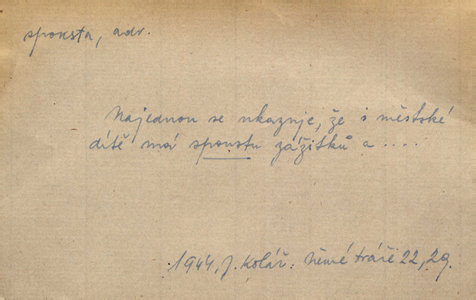 spousta, adv.
Najednou se ukazuje, že i městské
dítě má spoustu zážitků a ....
1944, J. Kolář. Němé tváře 22, 29.